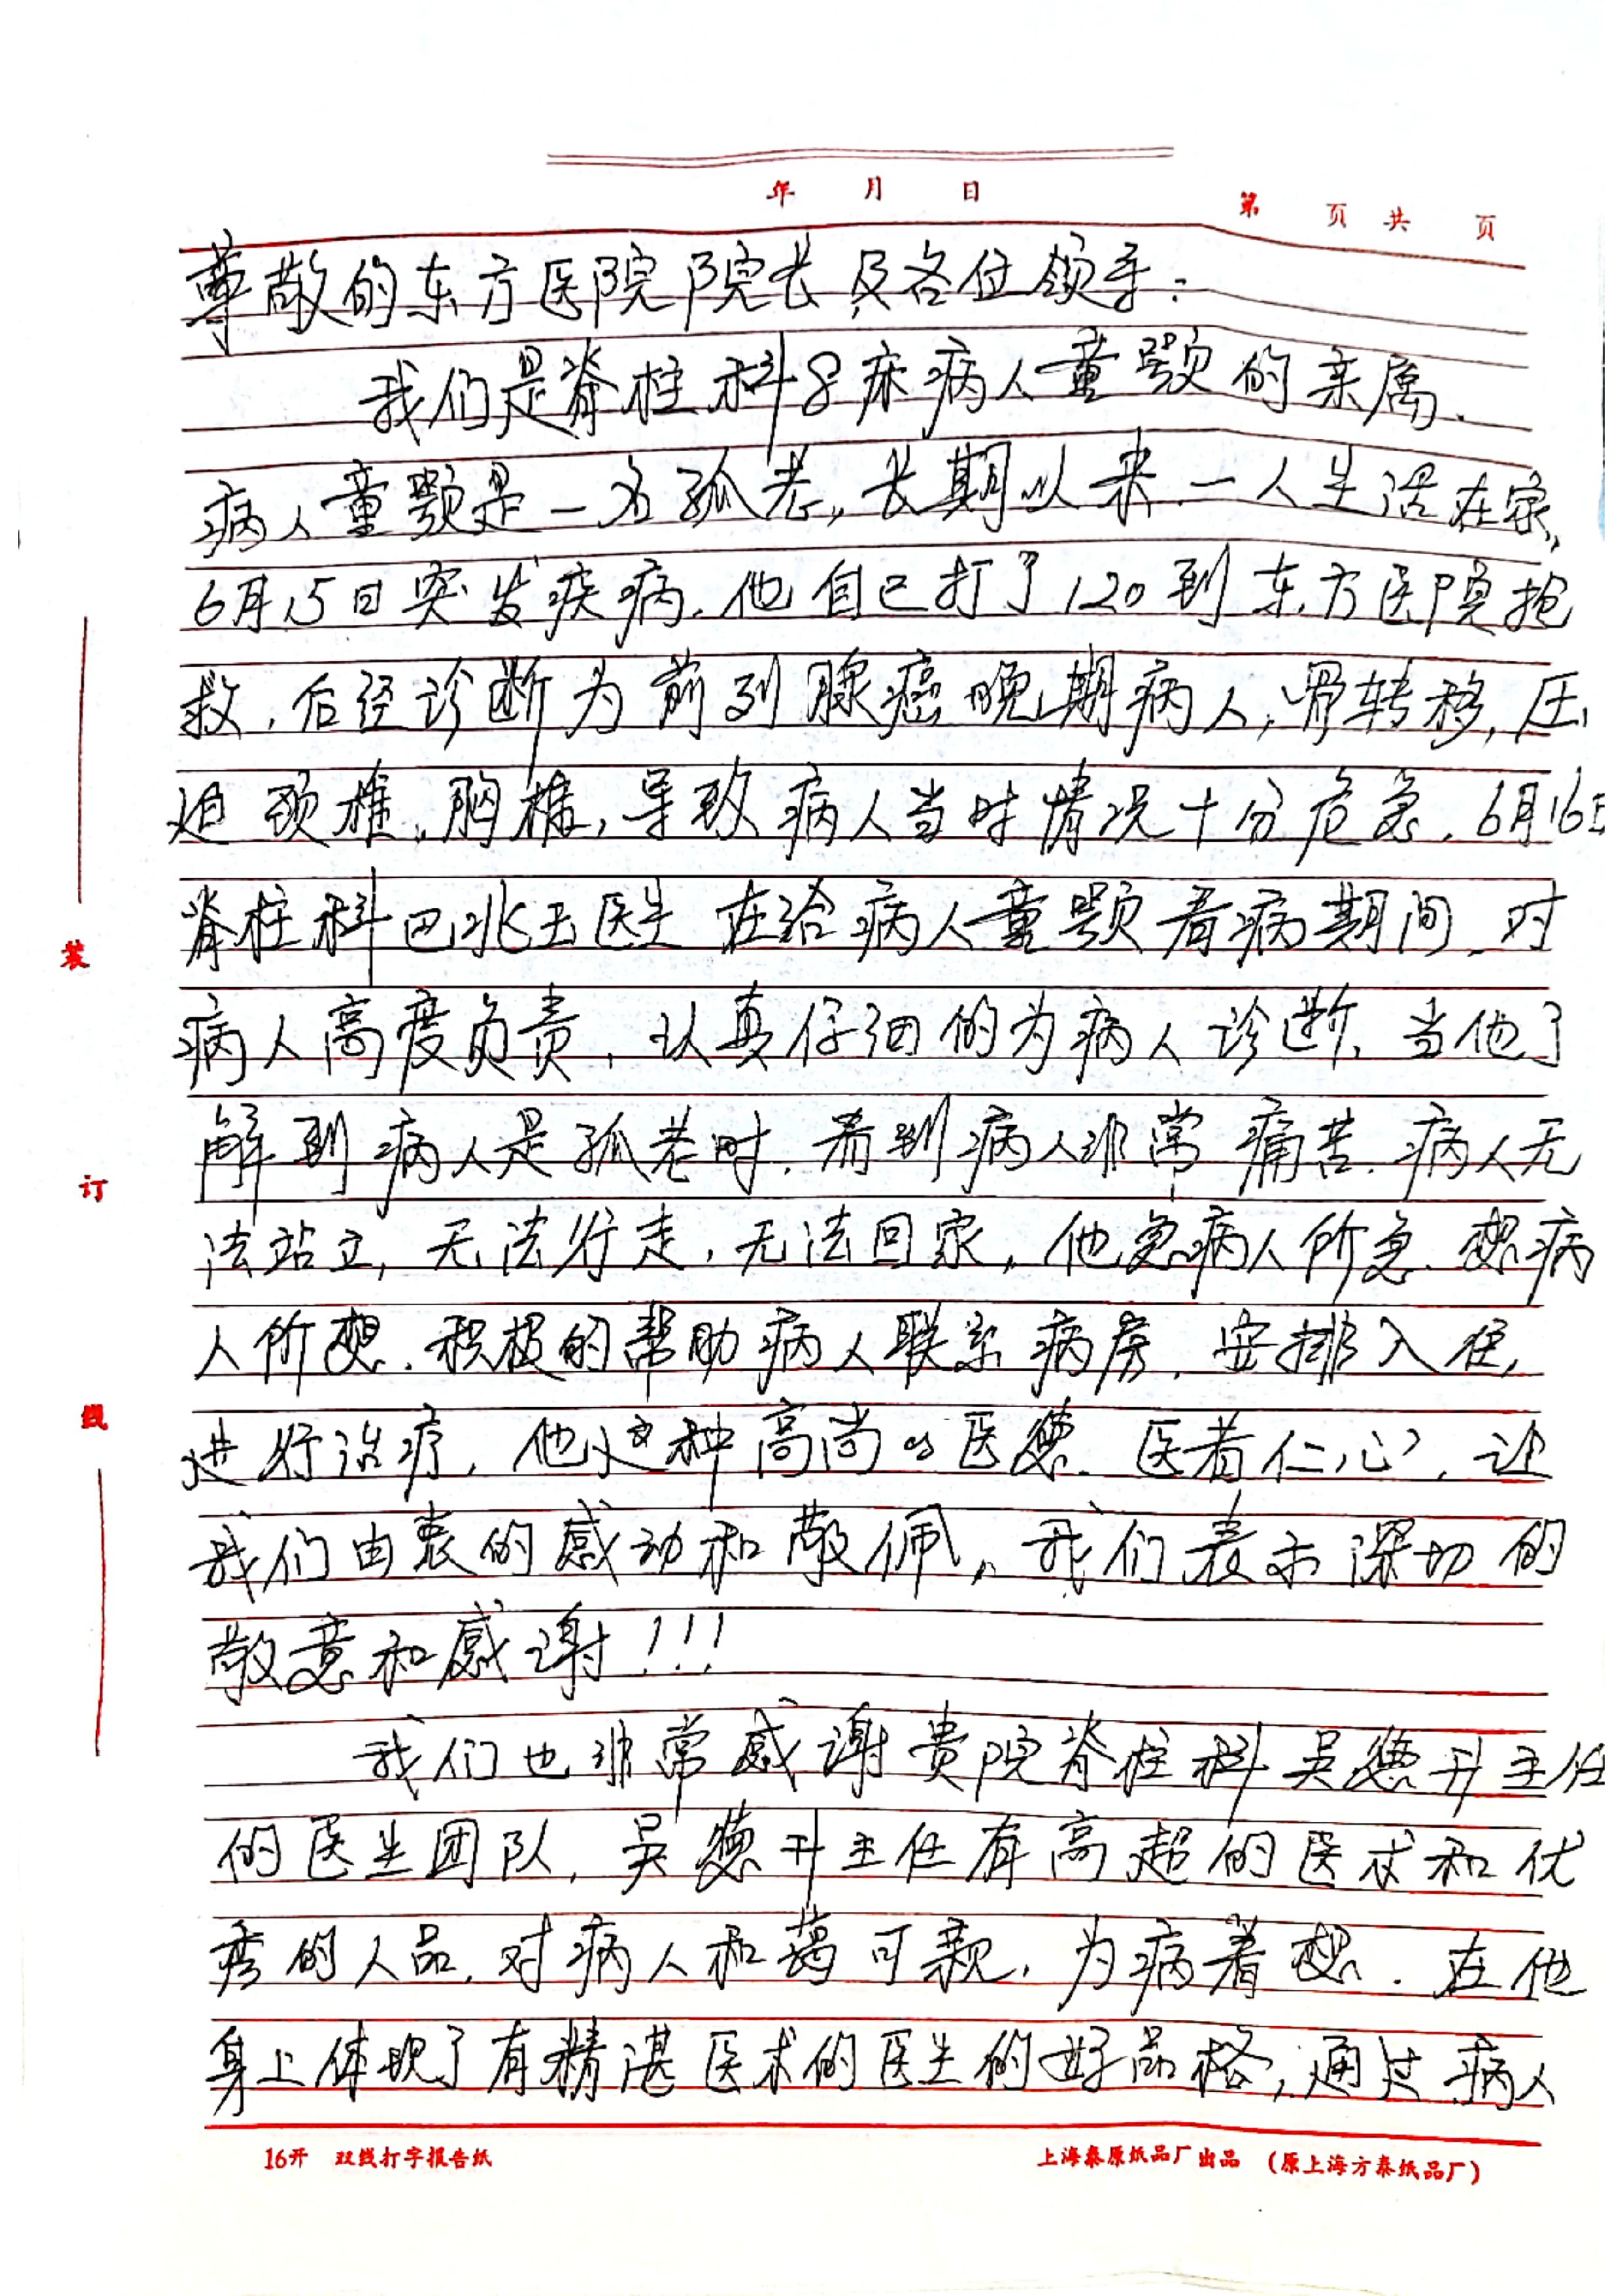 年 月 日
第 页 共 页
尊敬的东方医院院长及各位领导：
我们是脊柱科8床病人童颚的亲属.
病人童颚是一名孤老,长期以来一人生活在家,
6月15日突发疾病.他自己打了120到东方医院抢
救,后经诊断为前列腺癌晚期病人,骨转移,压
迫颈椎,胸椎,导致病人当时情况十分危急.6月16日
脊柱科巴兆玉医生在给病人童颚看病期间.对
病人高度负责,认真仔细的为病人诊断.当他了
解到病人是孤老时.看到病人非常痛苦.病人无
法站立,无法行走,无法回家,他急病人所急.想病
人所想.积极的帮助病人联系病房.安排入住,
进行治疗,他这种高尚的医德.医者仁心,让
我们由衷的感动和敬佩,我们表示深切的
敬意和感谢!!!
我们也非常感谢贵院脊柱科吴德升主任
的医生团队,吴德升主任有高超的医术和优
秀的人品.对病人和蔼可亲,为病着想.在他
身上体现了有精湛医术的医生的好品格,通过病人
装
订
线
16开 双线打字报告纸
上海泰原纸品厂出品 (原上海方泰纸品厂)